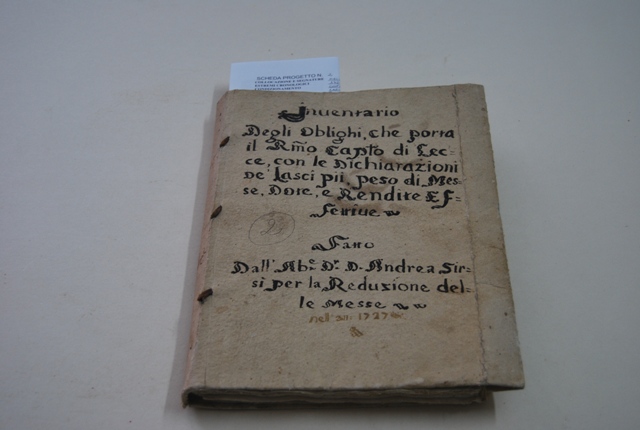 SCHEDA PROGETTO N.
Inventario
Degli Oblighi, che porta
il R͞mo Capto di Lec=
ce, con le Dichiarazioni
De' Lasci pii, peso di Mes=
se, Dote, e Rendite Ef=
fettive
Fatto
Dall' Abe. Dr. D. Andrea Sir=
si per la Reduzione del=
le Messe
nell' an: 1727